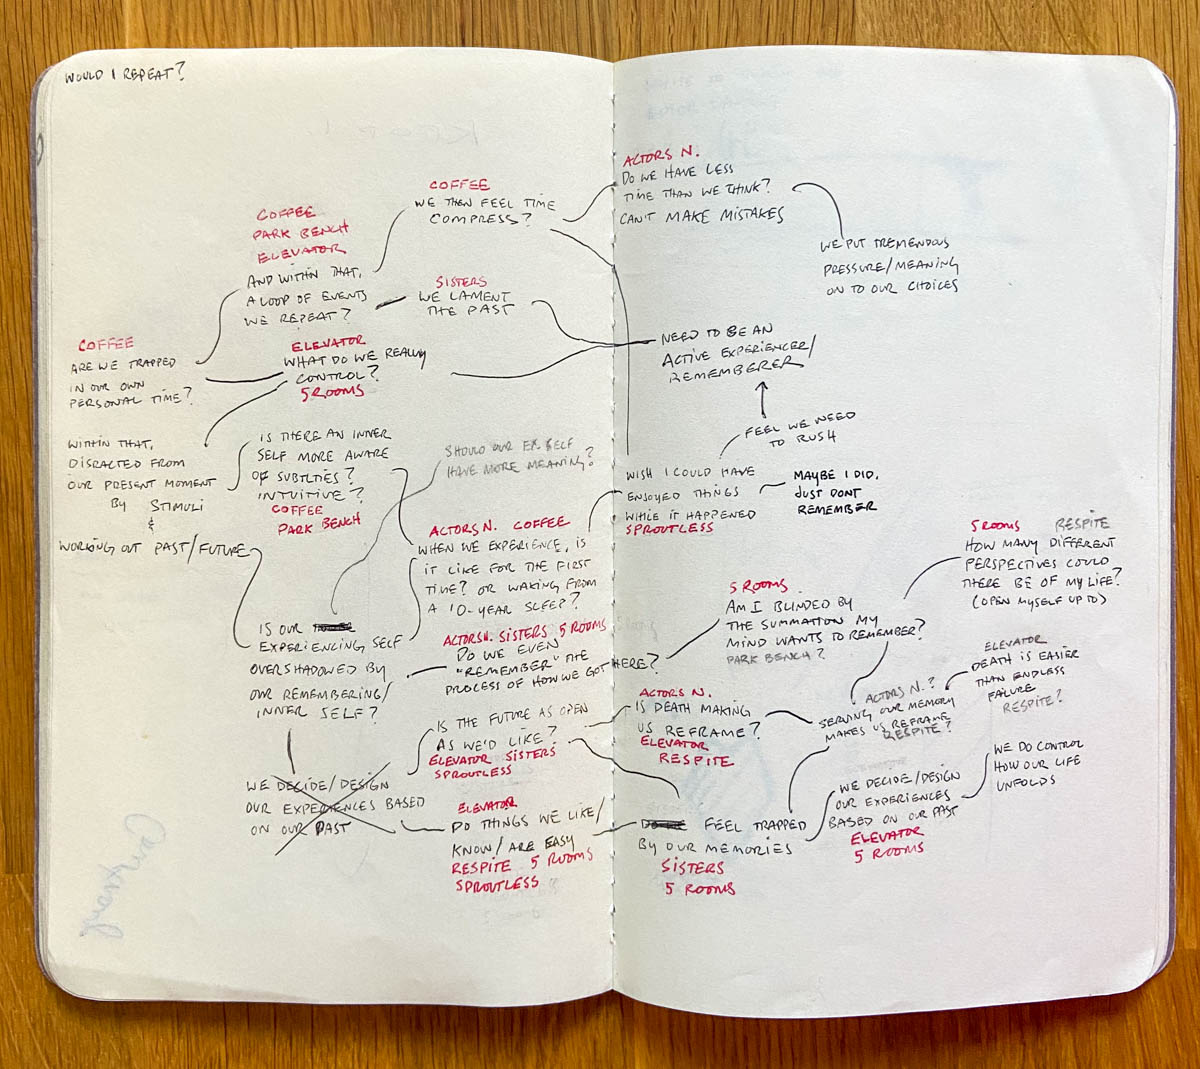 WOULD I REPEAT?
COFFEE
ARE WE TRAPPED
IN OUR OWN
PERSONAL TIME?
WITHIN THAT,
DISRACTED FROM
OUR PRESENT MOMENT
BY STIMULI
&
WORKING OUT PAST/FUTURE
COFFEE
PARK BENCH
ELEVATOR
AND WITHIN THAT,
A LOOP OF EVENTS
WE REPEAT?
ELEVATOR
WHAT DO WE REALLY
CONTROL?
5 ROOMS
IS THERE AN INNER
SELF MORE AWARE
OF SUBTLTIES?
INTUITIVE?
COFFEE
PARK BENCH
IS OUR
EXPERIENCING SELF
OVERSHADOWED BY
OUR REMEMBERING/
INNER SELF?
WE DECIDE/DESIGN
OUR EXPERIENCES BASED
ON OUR PAST
COFFEE
WE THEN FEEL TIME
COMPRESS?
SISTERS
WE LAMENT
THE PAST
SHOULD OUR EX. SELF
HAVE MORE MEANING?
ACTORS N. COFFEE
WHEN WE EXPERIENCE, IS
IT LIKE FOR THE FIRST
TIME? OR WAKING FROM
A 10-YEAR SLEEP?
ACTORS N. SISTERS 5 ROOMS
DO WE EVEN
"REMEMBER" THE
PROCESS OF HOW WE GOT HERE?
IS THE FUTURE AS OPEN
AS WE'D LIKE?
ELEVATOR SISTERS
SPROUTLESS
ELEVATOR
DO THINGS WE LIKE/
KNOW/ARE EASY
RESPITE 5 ROOMS
SPROUTLESS
ACTORS N.
DO WE HAVE LESS
TIME THAN WE THINK?
CAN'T MAKE MISTAKES
WE PUT TREMENDOUS
PRESSURE/MEANING
ON TO OUR CHOICES
NEED TO BE AN
ACTIVE EXPERIENCER/
REMEMBERER
FEEL WE NEED
TO RUSH
WISH I COULD HAVE
ENJOYED THINGS
WHILE IT HAPPENED
SPROUTLESS
MAYBE I DID,
JUST DONT
REMEMBER
5 ROOMS RESPITE
HOW MANY DIFFERENT
PERSPECTIVES COULD
THERE BE OF MY LIFE?
(OPEN MYSELF UP TO)
5 ROOMS
AM I BLINDED BY
THE SUMMATION MY
MIND WANTS TO REMEMBER?
PARK BENCH?
ELEVATOR
DEATH IS EASIER
THAN ENDLESS
FAILURE
RESPITE?
ACTORS N.
IS DEATH MAKING
US REFRAME?
ELEVATOR
RESPITE
ACTORS N.?
SERVING OUR MEMORY
MAKES US REFRAME
RESPITE?
WE DO CONTROL
HOW OUR LIFE
UNFOLDS
FEEL TRAPPED
BY OUR MEMORIES
SISTERS
5 ROOMS
WE DECIDE/DESIGN
OUR EXPERIENCES
BASED ON OUR PAST
ELEVATOR
5 ROOMS